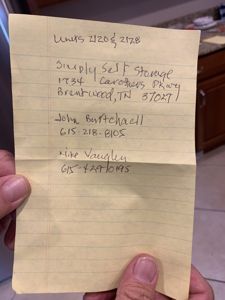 Units 2120 & 2128
Simply Self Storage
1734 Carothers Pkwy
Brentwood, TN 37027
John Burtchaell
615-218-8105
Mike Vaughn
615-